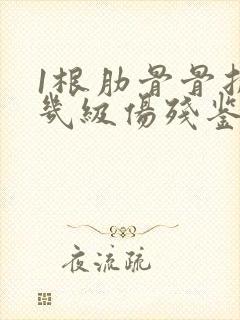 1根肋骨骨
幾級傷殘鉴
夜流疏